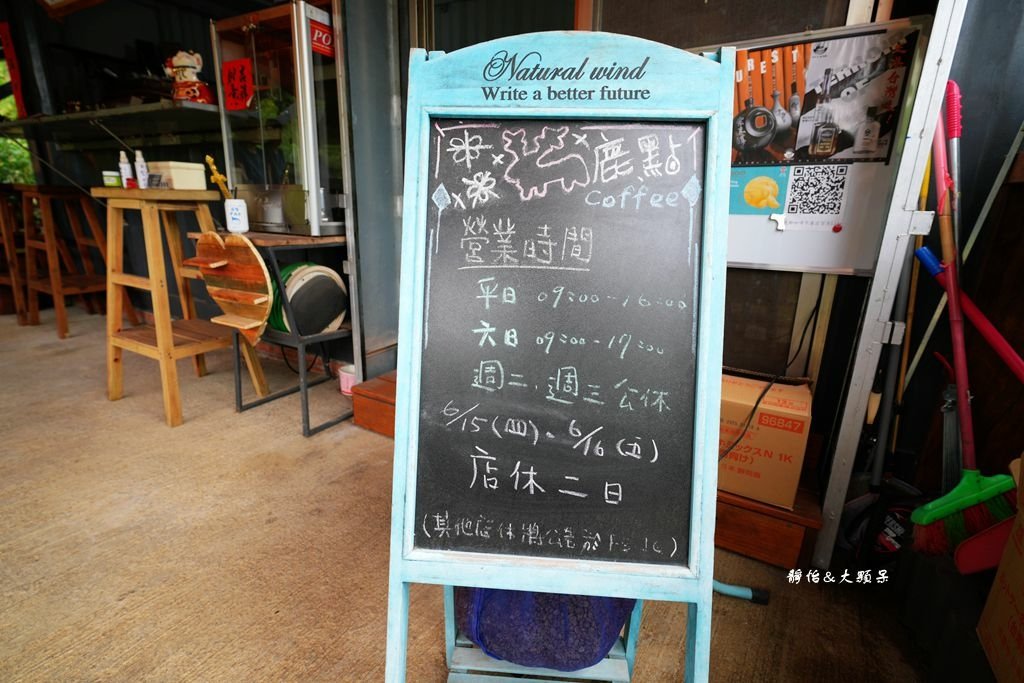 Natural wind
Write a better future
鹿點
coffee
營業時間
平日 09:00-16:00
六日 09:00-17:00
週二、週三公休
6/15(四)、6/16(五)
店休二日
(其他店休將公告於
PO
96847
N 1K
靜怡&大顆呆